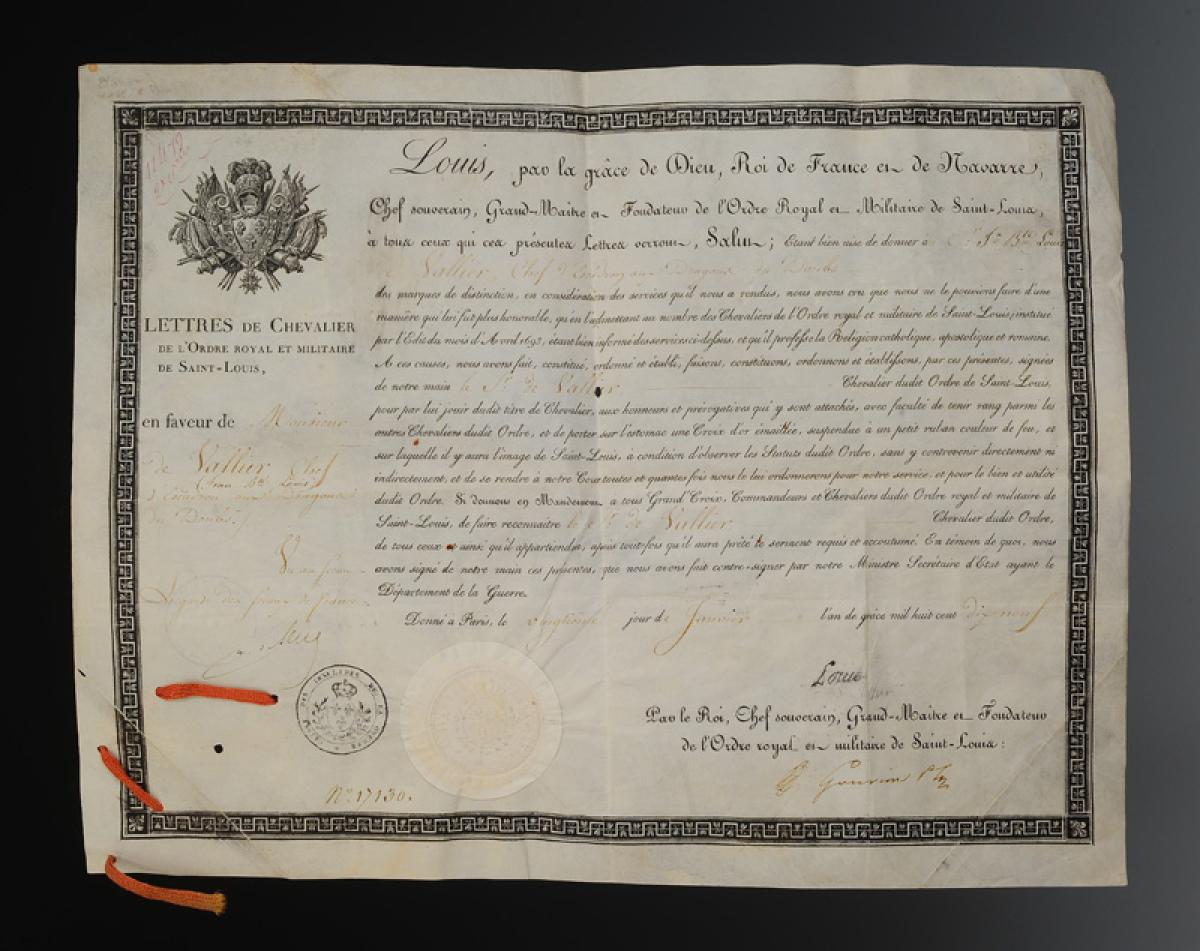 LETTRES DE CHEVALIER
DE L'ORDRE ROYAL ET MILITAIRE
DE SAINT-LOUIS,
en faveur de Monsieur
de Vallier, Chef
Jean Bte Louis
d'Escadron aux Dragons
du Doubs
Vu au Sceau
Le garde des Sceaux de France
Nº. 17130.
Louis, par la grâce de Dieu, Roi de France et de Navarre,
Chef souverain, Grand-Maître et Fondateur de l'Ordre Royal et Militaire de Saint-Louis,
à tous ceux qui ces présentes Lettres verront, Salut; Etant bien aise de donner à Sr Jn Bte Louis
de Vallier, Chef d'Escadron aux Dragons du Doubs
des marques de distinction, en considération des services qu'il nous a rendus, nous avons cru que nous ne le pouvions faire d'une
manière qui lui fut plus honorable, qu'en l'admettant au nombre des Chevaliers de l'Ordre royal et militaire de Saint-Louis, institué
par l'Edit du mois d'Avril 1693, étant bien informé des services ci-dessus, et qu'il professe la Religion catholique, apostolique et romaine.
A ces causes, nous avons fait, constitué, ordonné et établi, faisons, constituons, ordonnons et établissons, par ces présentes, signées
de notre main le Sr. de Vallier Chevalier dudit Ordre de Saint-Louis,
pour par lui jouir dudit titre de Chevalier, aux honneurs et prérogatives qui y sont attachés, avec faculté de tenir rang parmi les
autres Chevaliers dudit Ordre, et de porter sur l'estomac une Croix d'or émaillée, suspendue à un petit ruban couleur de feu, et
sur laquelle il y aura l'image de Saint-Louis, à condition d'observer les Statuts dudit Ordre, sans y contrevenir directement ni
indirectement, et de se rendre à notre Cour toutes et quantes fois nous le lui ordonnerons pour notre service, et pour le bien et utilité
dudit Ordre. Si donnons en Mandement à tous Grand'Croix, Commandeurs et Chevaliers dudit Ordre royal et militaire de
Saint-Louis, de faire reconnaitre le Sr. de Vallier Chevalier dudit Ordre,
de tous ceux et ainsi qu'il appartiendra, après tout-fois qu'il aura prêté le serment requis et accoutumé. En témoin de quoi, nous
avons signé de notre main ces présentes, que nous avons fait contre-signer par notre Ministre Secrétaire d'Etat ayant le
Département de la Guerre.
Donné à Paris, le vingtième jour de Janvier l'an de grâce mil huit cent dix neuf
Louis
Par le Roi, Chef souverain, Grand-Maître et Fondateur
de l'Ordre royal et militaire de Saint-Louis:
Gouvion St Cyr